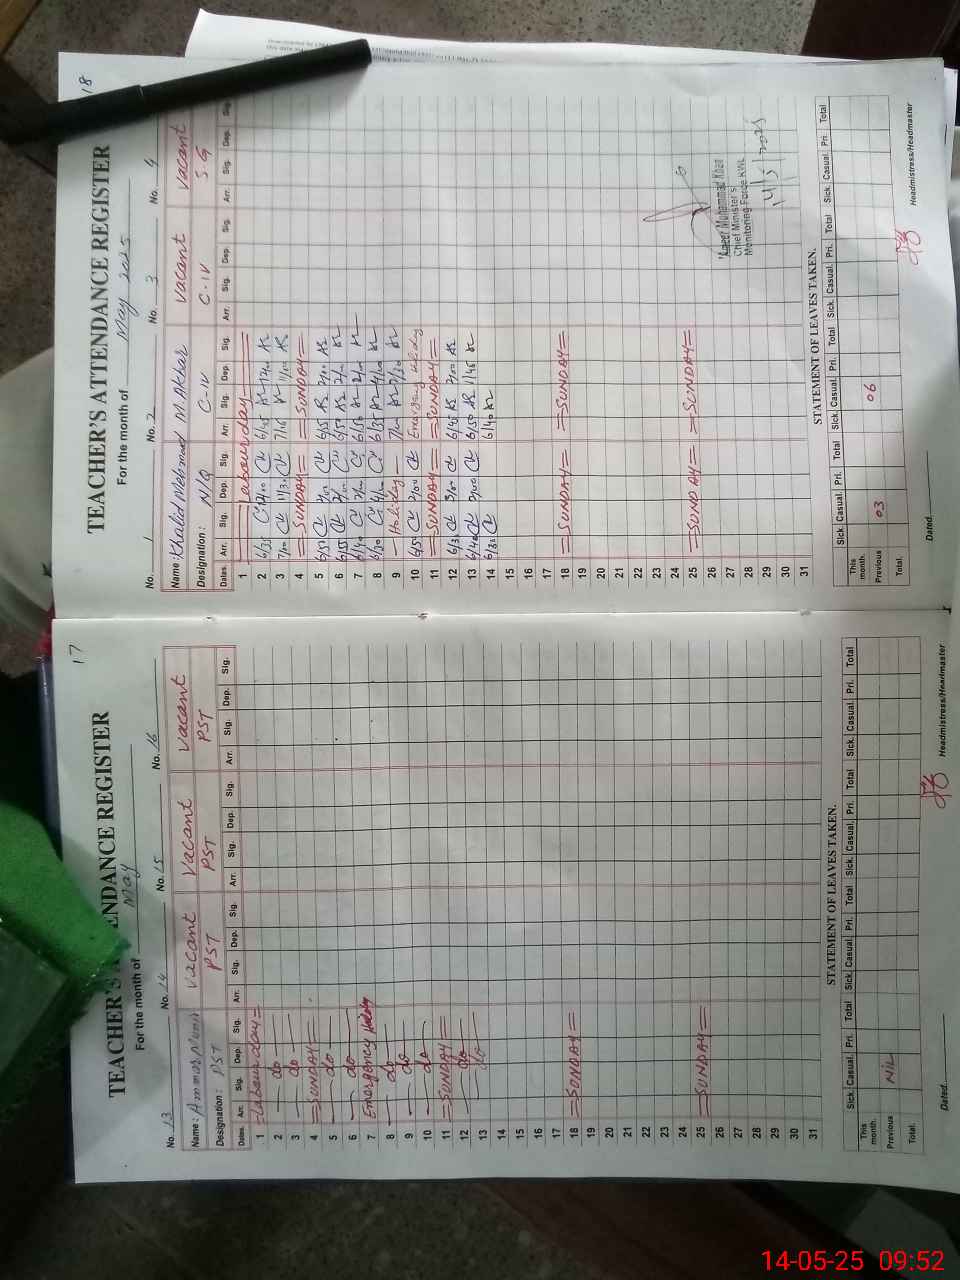 17
TEACHER'S ATTENDANCE REGISTER
For the month of May
No. 13 No. 14 No. 15 No. 16
Name: Ammar vacant vacant vacant
Designation: PST PST PST PST
Dates. Arr. Sig. Dep. Sig. Arr. Sig. Dep. Sig. Arr. Sig. Dep. Sig. Arr. Sig. Dep. Sig.
1 =Labour day=
2 — do —
3 — do —
4 =SUNDAY=
5 — do —
6 — do —
7 Emergency Holiday
8 — do —
9 — do —
10 — do —
11 =SUNDAY=
12 — do —
13 do
14
15
16
17
18 =SUNDAY=
19
20
21
22
23
24
25 =SUNDAY=
26
27
28
29
30
31
STATEMENT OF LEAVES TAKEN.
Sick. Casual. Pri. Total Sick. Casual. Pri. Total Sick. Casual. Pri. Total Sick. Casual. Pri. Total
This month.
Previous Nil
Total.
Dated
Headmistress/Headmaster
18
TEACHER'S ATTENDANCE REGISTER
For the month of May 2025
No. 1 No. 2 No. 3 No. 4
Name: Khalid Mehmood M. Akhtar vacant vacant
Designation: N/Q C-IV C-IV S-G
Dates. Arr. Sig. Dep. Sig. Arr. Sig. Dep. Sig. Arr. Sig. Dep. Sig. Arr. Sig. Dep. Sig.
1 Labour day
2 6/35 12/00 6/45 12/00
3 7/00 11/30 7/15 11/00
4 =SUNDAY= =SUNDAY=
5 6/50 2/00 6/55 2/00
6 6/55 2/00 6/50 2/00
7 6/40 2/00 6/50 2/00
8 6/30 4/00 6/35 4/00
9 — Holiday — 7/00 2/30
10 6/50 2/00 Emergency Holiday
11 =SUNDAY= =SUNDAY=
12 6/35 3/00 6/45 2/00
13 6/40 2/00 6/50 1/45
14 6/30 6/40
15
16
17
18 =SUNDAY= =SUNDAY=
19
20
21
22
23
24
25 =SUNDAY= =SUNDAY=
26
27
28
29
30
31
Muhammad Khan
Chief Minister's
Monitoring Force KWL
14/5/2025
STATEMENT OF LEAVES TAKEN.
Sick. Casual. Pri. Total Sick. Casual. Pri. Total Sick. Casual. Pri. Total Sick. Casual. Pri. Total
This month.
Previous 03 06
Total.
Dated
Headmistress/Headmaster
14-05-25 09:52